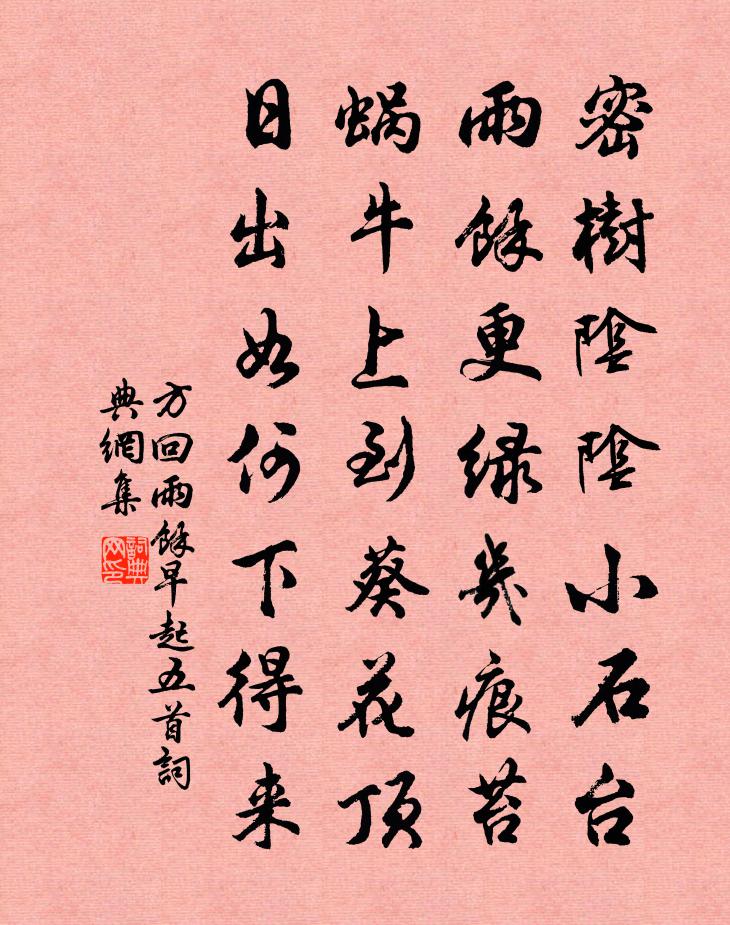 密樹陰陰小石台
雨餘更緑幾痕苔
蝸牛上到葵花頂
日出如何下得来
方回雨餘早起五首詞
典網集
詞典
网印